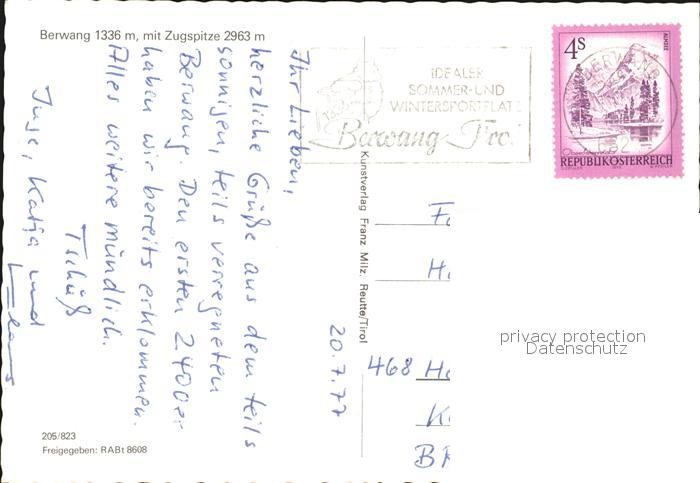 Berwang 1336 m, mit Zugspitze 2963 m
Ihr Lieben,
herzliche Grüße aus dem teils
sonnigen, teils verregneten
Berwang. Den ersten 2400er
haben wir bereits erklommen.
Alles weitere mündlich.
Tschüß
Inge, Katja und
205/823
Freigegeben: RABt 8608
Kunstverlag Franz Milz, Reutte/Tirol
20.7.77
IDEALER
SOMMER-UND
WINTERSPORTPLATZ
Berwang Tirol
4S
ALMSEE
BERWANG
6622
REPUBLIK ÖSTERREICH
F
H
468 He
K
BR
privacy protection
Datenschutz